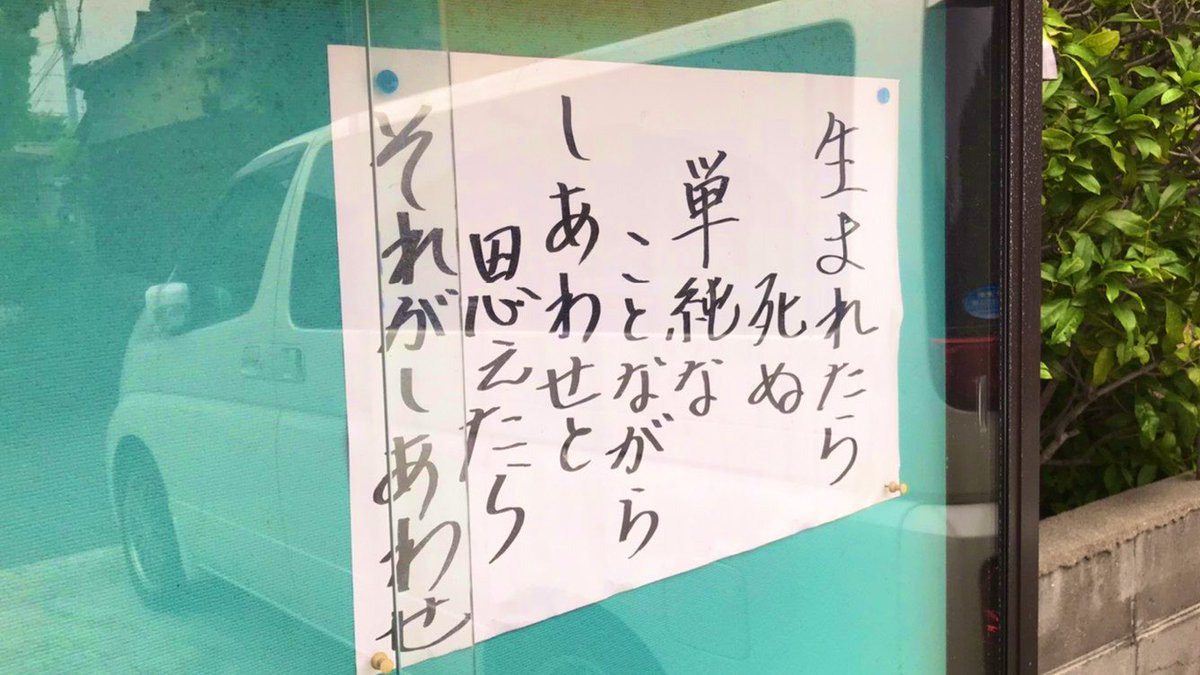 生まれたら
死ぬ
単純な
ことながら
しあわせと
思えたら
それがしあわせ